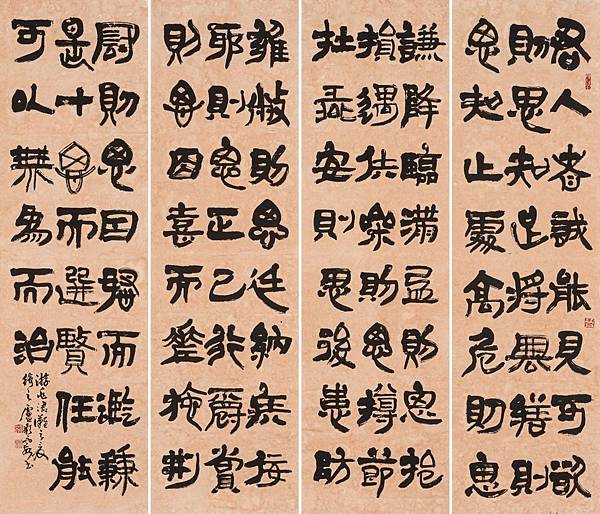 君人者誠能見可欲
則思知足將興繕則
思知止處高危則思
謙降臨滿盈則思挹
損遇佚樂則思撙節
在宴安則思後患防
雍蔽則思延納疾讒
耶則思正己行爵賞
則思因喜而僭施刑
罰則思因怒而濫兼
是十思而選賢任能
可以無為而治
游兆涒灘之
書